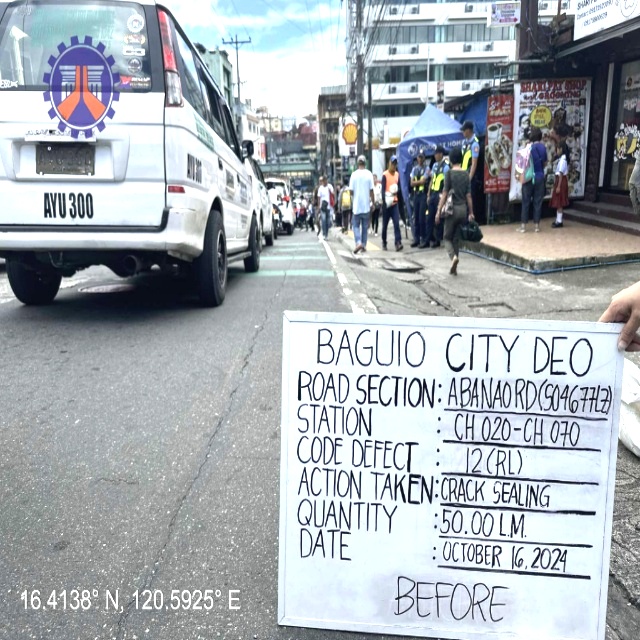 AYU 300
BAGUIO CITY DEO
ROAD SECTION: ABANAO RD (S04677LZ)
STATION : CH 020-CH 070
CODE DEFECT : 12 (RL)
ACTION TAKEN: CRACK SEALING
QUANTITY : 50.00 L.M.
DATE : OCTOBER 16, 2024
BEFORE
16.4138° N, 120.5925° E